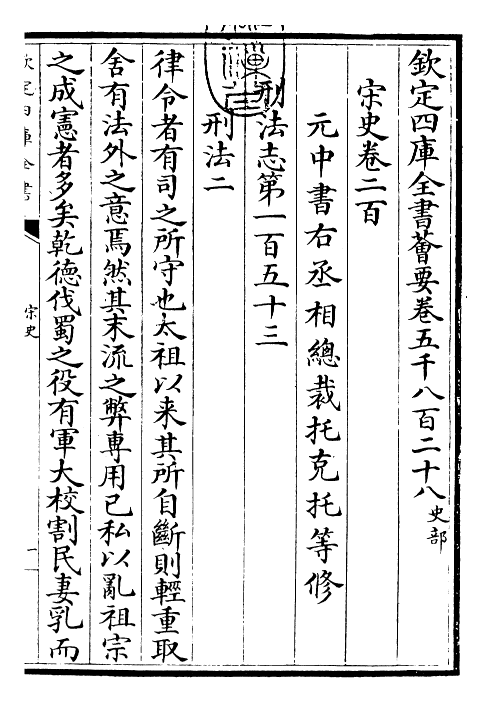 欽定四庫全書薈要卷五千八百二十八史部
宋史卷二百
元中書右丞相總裁托克托等修
刑法志第一百五十三
刑法二
律令者有司之所守也太祖以来其所自斷則輕重取
舍有法外之意焉然其末流之弊専用已私以亂祖宗
之成憲者多矣乾德伐蜀之役有軍大校割民妻乳而
欽定四庫全書
宋史
一